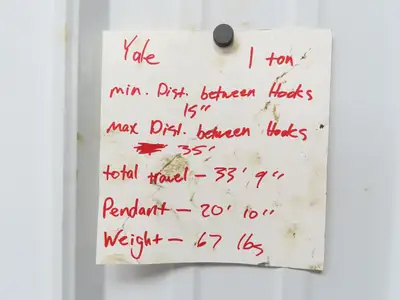 Yale 1 ton
min. Dist. between Hooks
15"
max Dist. between Hooks
35'
total travel - 33' 9"
Pendant - 20' 10"
Weight - 67 lbs